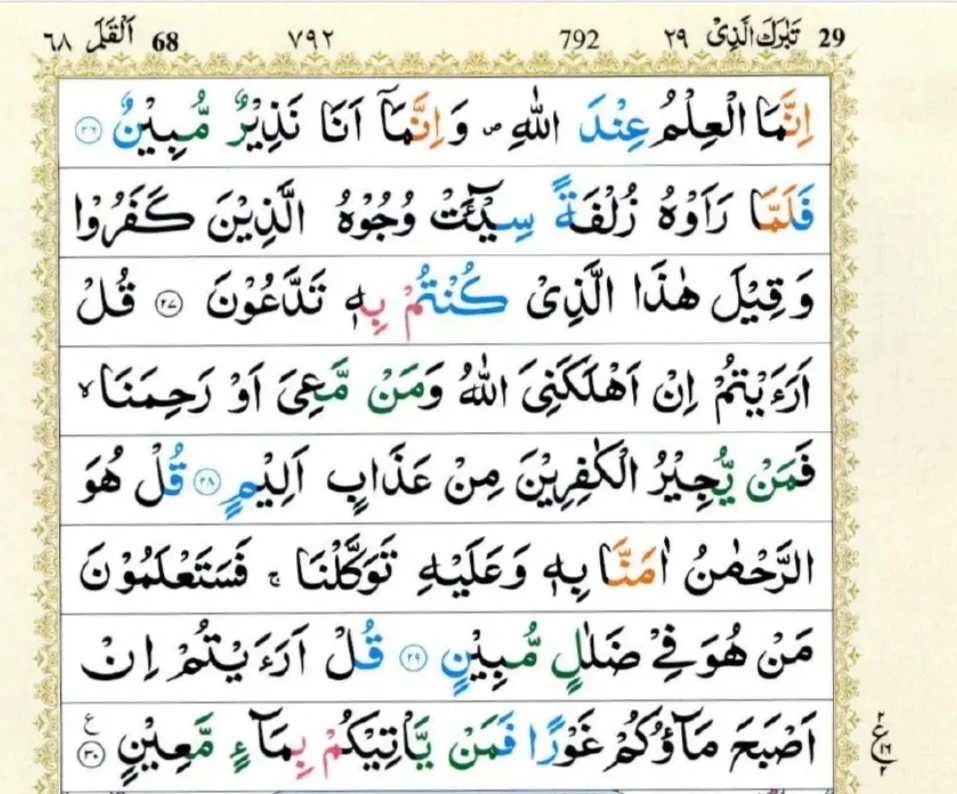 29 تَبٰرَكَ الَّذِیْ ٢٩ 792 ٧٩٢ 68 اَلْقَلَم ٦٨
اِنَّمَا الْعِلْمُ عِنْدَ اللّٰهِ ۪ وَ اِنَّمَاۤ اَنَا نَذِیْرٌ مُّبِیْنٌ ﴿۲۶﴾
فَلَمَّا رَاَوْهُ زُلْفَةً سِیْٓـَٔتْ وُجُوْهُ الَّذِیْنَ كَفَرُوْا
وَ قِیْلَ هٰذَا الَّذِیْ كُنْتُمْ بِهٖ تَدَّعُوْنَ ﴿۲۷﴾ قُلْ
اَرَءَیْتُمْ اِنْ اَهْلَكَنِیَ اللّٰهُ وَمَنْ مَّعِیَ اَوْ رَحِمَنَا ۙ
فَمَنْ یُّجِیْرُ الْكٰفِرِیْنَ مِنْ عَذَابٍ اَلِیْمٍ ﴿۲۸﴾ قُلْ هُوَ
الرَّحْمٰنُ اٰمَنَّا بِهٖ وَعَلَیْهِ تَوَكَّلْنَا ۚ فَسَتَعْلَمُوْنَ
مَنْ هُوَ فِیْ ضَلٰلٍ مُّبِیْنٍ ﴿۲۹﴾ قُلْ اَرَءَیْتُمْ اِنْ
اَصْبَحَ مَآؤُكُمْ غَوْرًا فَمَنْ یَّاْتِیْكُمْ بِمَآءٍ مَّعِیْنٍ ﴿۳۰﴾ ع
٢ ع ١٦ ٢